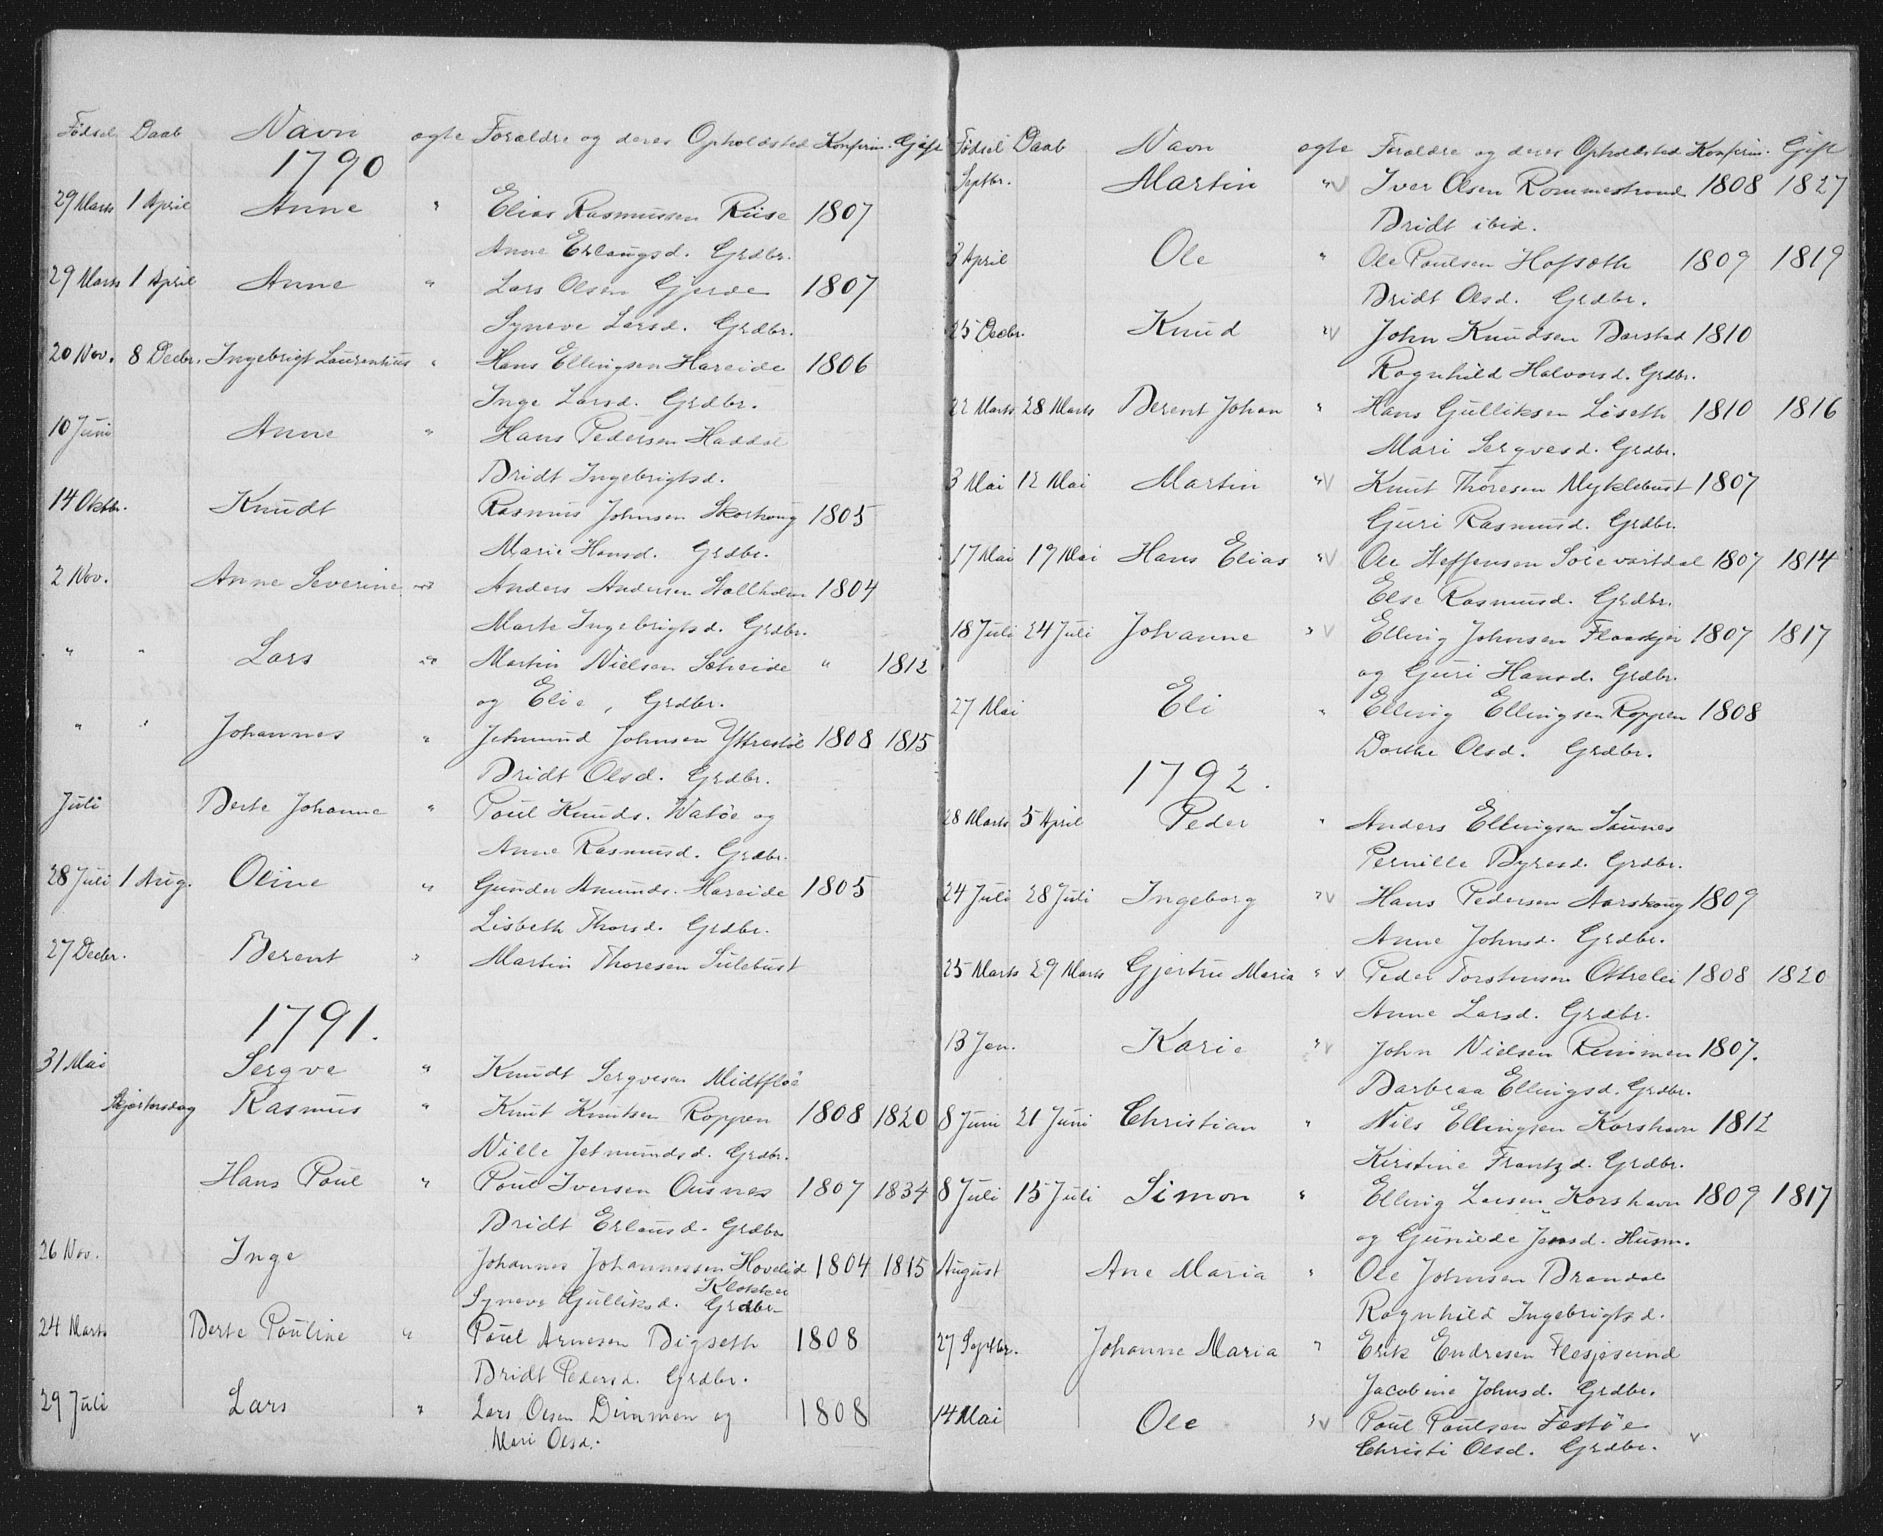 Fødsel Daab Navn ægte Forældre og deres Opholdsted Konfirm. Gift
1790
29 Marts 1 April Anne " Elias Rasmussen Riise 1807
Anne Erlaugsd. Grdbr.
29 Marts 1 April Anne " Lars Olsen Gjerde 1807
Syneve Larsd. Grdbr.
20 Nov. 8 Decbr. Ingebrigt Laurentius " Hans Ellingsen Hareide 1806
Inge Larsd. Grdbr.
10 Juni Anne " Hans Pedersen Haddal
Bridt Ingebrigtsd.
14 Oktbr. Knudt Rasmus Johnsen Skorkong 1805
Marie Hansd. Grdbr.
2 Nov. Anne Severine Anders Andersen Stallholm 1804
Marte Ingebrigtsd. Grdbr.
" " Lars Martin Nielsen " 1812
og Elie, Grdbr.
" " Johannes " Jetmund Johnsen Yttrestøl 1808 1815
Bridt Olsd. Grdbr.
Juli Berte Johanne " Poul Knuds. Watøe og
Anne Rasmusd. Grdbr.
28 Juli 1 Aug. Oline " Gunder Amunds. Hareide 1805
Lisbeth Thorsd. Grdbr.
27 Decbr. Berent " Martin Thoresen Sulebust
1791.
31 Mai Sergve " Knudt Sergvesen Midtfløe
Skjærtorsdag Rasmus " Knut Knutsen Roppen 1808 1820
Nille Jetmundsd. Grdbr.
Hans Poul " Poul Iversen Ousnes 1807 1834
Bridt Erlausd. Grdbr.
26 Nov. Inge Johannes Johannessen Hovelid 1804 1815
Klokker
Syneve Gulliksd. Grdbr.
24 Marts Berte Pouline " Poul Arnesen Bigseth 1808
Bridt Pedersd. Grdbr.
29 Juli Lars " Lars Olsen Dimmen og 1808
Mari Olsd.
Fødsel Daab Navn ægte Forældre og deres Opholdsted Konfirm. Gift
Septbr. Martin " v Iver Olsen Rommestrand 1808 1827
Bridt ibid.
3 April Ole " Ole Poulsen Hofsæth 1809 1819
Bridt Olsd. Grdbr.
25 Decbr. Knud " v John Knudsen Barstad 1810
Ragnhild Halvorsd. Grdbr.
22 Marts 28 Marts Berent Johan " Hans Gulliksen Liseth 1810 1816
Mari Sergvesd. Grdbr.
3 Mai 12 Mai Martin " v Knut Thoresen Myklebust 1807
Guri Rasmusd. Grdbr.
17 Mai 19 Mai Hans Elias " v Ole Steffensen Søre vartdal 1807 1814
Else Rasmusd. Grdbr.
18 Juli 24 Juli Johanne " v Elling Johnsen Flaaskjer 1807 1817
og Guri Hansd. Grdbr.
27 Mai Eli " Elling Ellingsen Roppen 1808
Dorthe Olsd. Grdbr.
1792.
28 Marts 5 April Peder " Anders Ellingsen Saunes
Pernille Byresd. Grdbr.
24 Juli 28 Juli Ingeborg " v Hans Pedersen Aarskoug 1809
Anne Johnsd. Grdbr.
25 Marts 29 Marts Gjertru Maria " v Peder Torstensen Ottrelei 1808 1820
Anne Larsd. Grdbr.
13 Jan. Karie " v John Nielsen Remmen 1807.
Barbraa Ellingsd. Grdbr.
8 Juni 21 Juni Christian " Nils Ellingsen Korshavn 1812
Kirstine Frantzd. Grdbr.
8 Juli 15 Juli Simon " Elling Larsen Korshavn 1809 1817
og Gunilde Jensd. Husm.
August Ane Maria " Ole Johnsen Brandal
Ragnhild Ingebrigtsd.
27 Septbr. Johanne Maria " Erik Endresen Flesjesund
Jacobine Johnsd. Grdbr.
14 Mai Ole " v Poul Poulsen Festøe
Christi Olsd. Grdbr. v